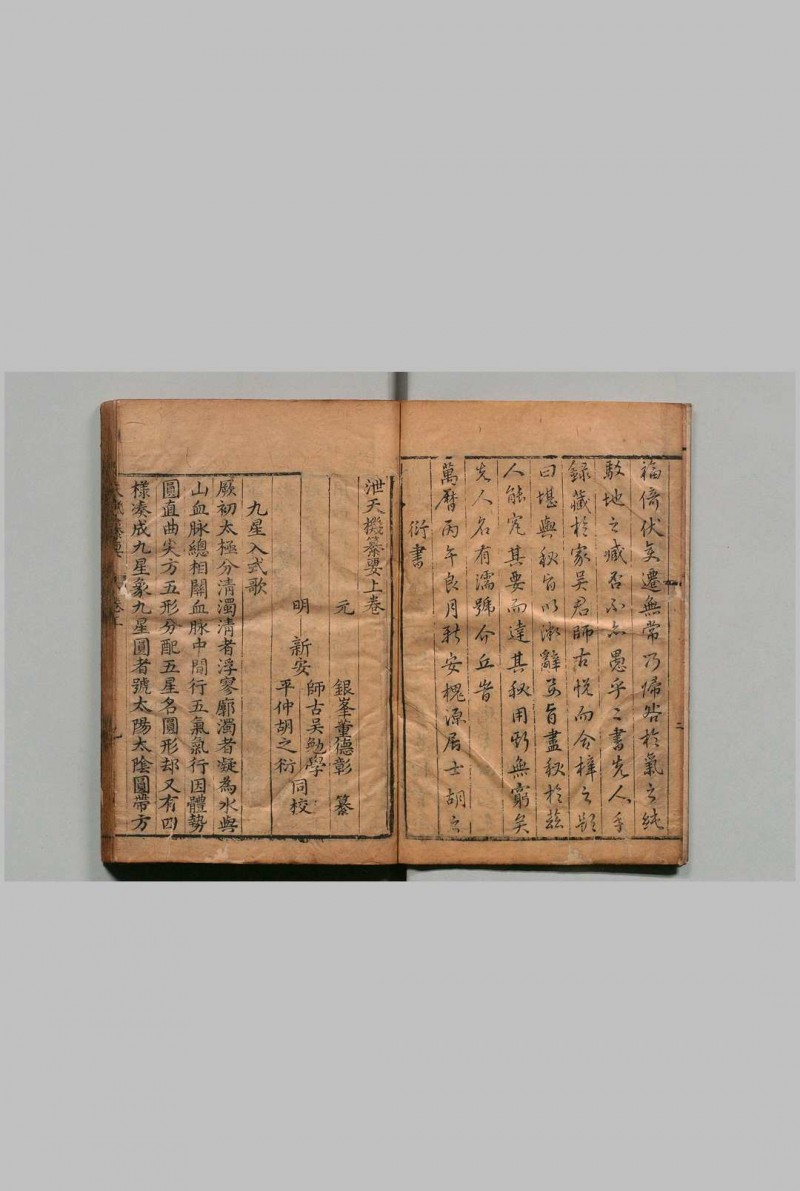 福倚伏變遷無常乃歸咎於氣之純
駁地之臧否不亦愚乎二書先人手
錄藏於家吳君師古悅而命梓之題
曰堪輿秘旨以漱辭旨盡秘於茲
人能究其要而達其秘用斯無窮矣
先人名有濡號介丘皆
萬曆丙午良月新安槐源居士胡之
衍書
泄天機纂要上卷
元 銀峯董德彰 纂
明 新安 師古吳勉學
平仲胡之衍 同校
九星入式歌
厥初太極分清濁清者浮寥廓濁者凝為水與
山血脉總相關血脉中間行五氣氣行因體勢
圓直曲尖方五形分配五星名圓形却又有四
樣湊成九星象九星圓者號太陽太陰圓帶方